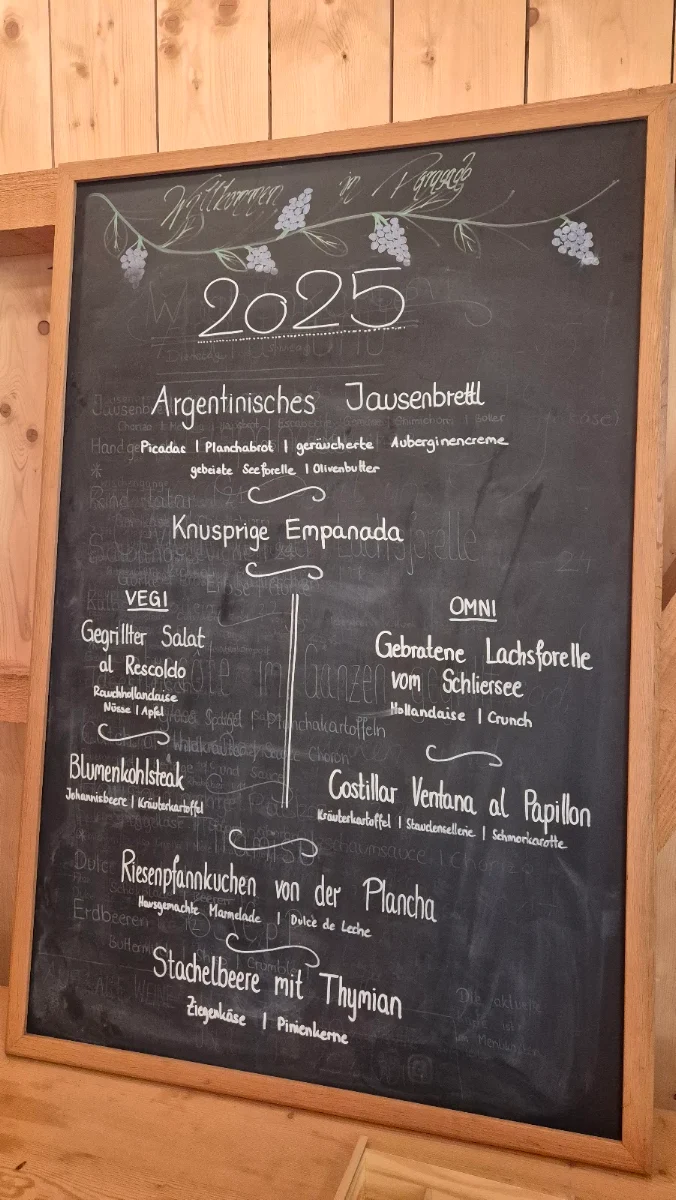 Willkommen in
2025
Argentinisches Jausenbrettl
Picadas | Planchabrot | geräucherte Auberginencreme
gebeizte Seeforelle | Olivenbutter
Knusprige Empanada
VEGI
Gegrillter Salat
al Rescoldo
Rauchhollandaise
Nüsse | Apfel
Blumenkohlsteak
Johannisbeere | Kräuterkartoffel
OMNI
Gebratene Lachsforelle
vom Schliersee
Hollandaise | Crunch
Costillar Ventana al Papillon
Kräuterkartoffel | Staudensellerie | Schmorkarotte
Riesenpfannkuchen von der Plancha
Hausgemachte Marmelade | Dulce de Leche
Stachelbeere mit Thymian
Ziegenkäse | Pinienkerne